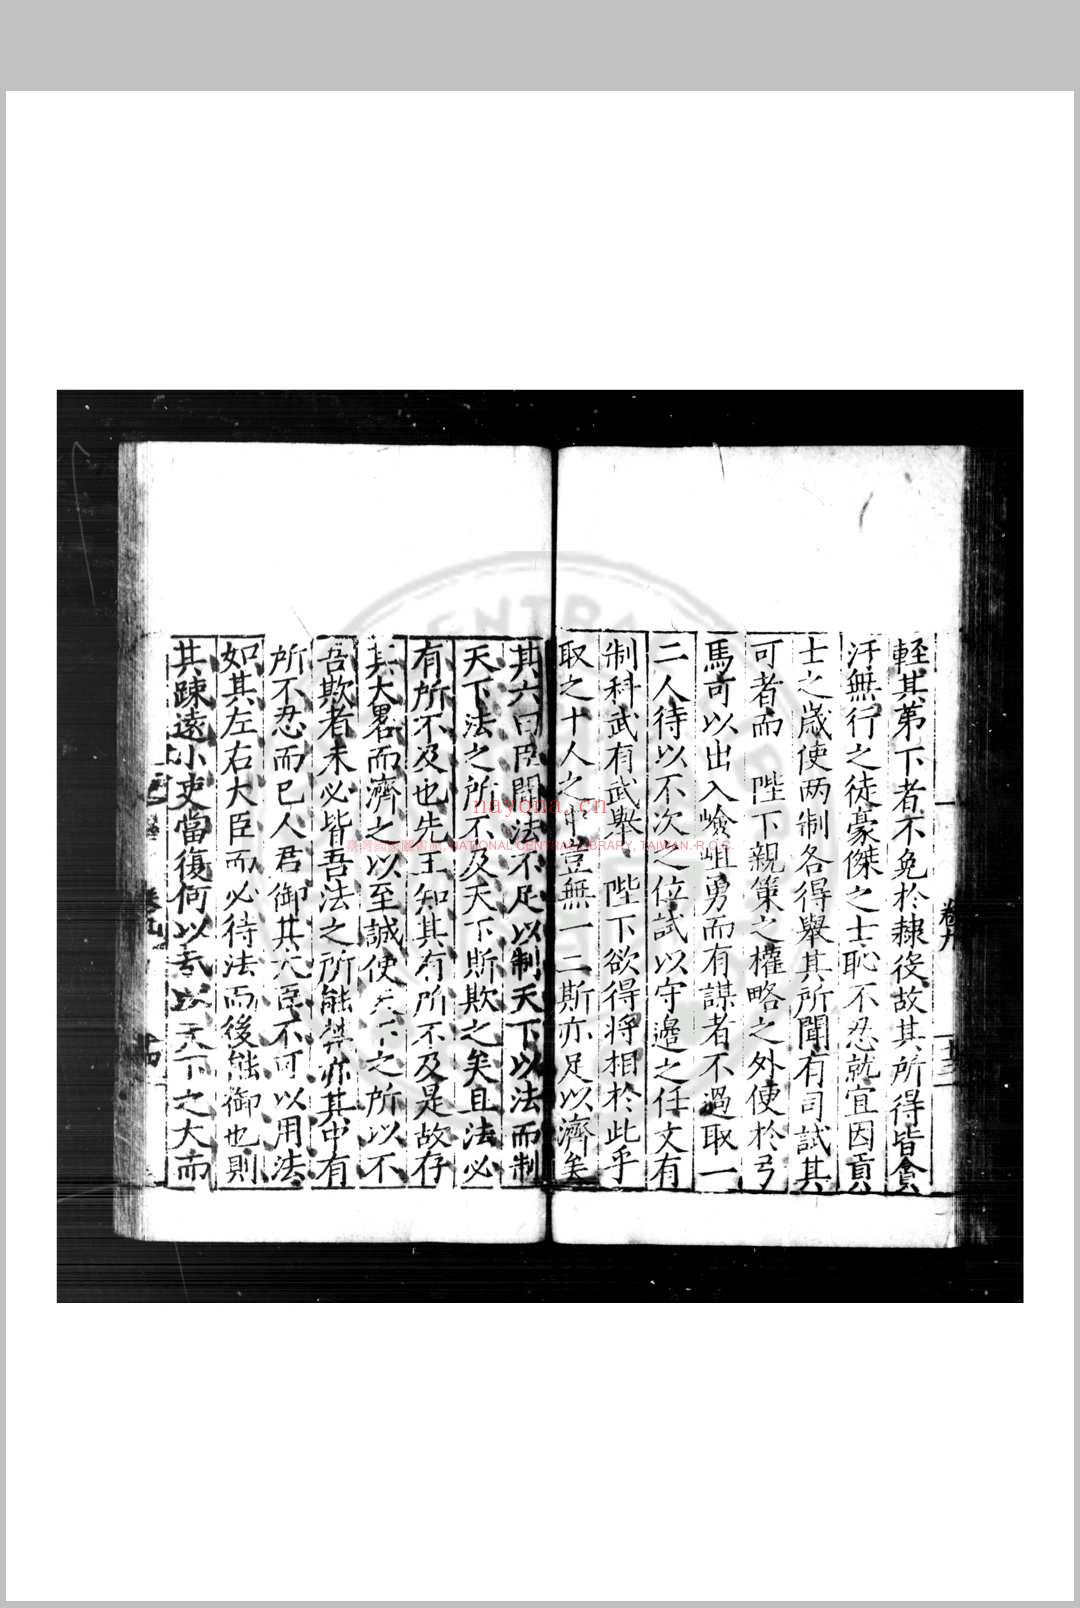 輕其第下者不免於隷役故其所得皆貪
汙無行之徒豪傑之士恥不忍就宜因貢
士之歲使两制各得舉其所聞有司試其
可者而 陛下親策之權略之外便於弓
馬可以出入嶮岨勇而有謀者不過取一
二人待以不次之位試以守邊之任文有
制科武有武舉 陛下欲得将相於此乎
取之十人之中豈無一二斯亦足以濟矣
其六曰臣聞法不足以制天下以法而制
天下法之所不及天下斯欺之矣且法必
有所不及也先王知其有所不及是故存
其大畧而濟之以至誠使天下之所以不
吾欺者未必皆吾法之所能禁亦其中有
所不忍而已人君御其大臣不可以用法
如其左右大臣而必待法而後能御也則
其踈遠小吏當復何以哉以天下之大而
卷九
十三
nayona.cn
臺灣國家圖書館, NATIONAL CENTRAL LIBRARY, TAIWAN, R.O.C.